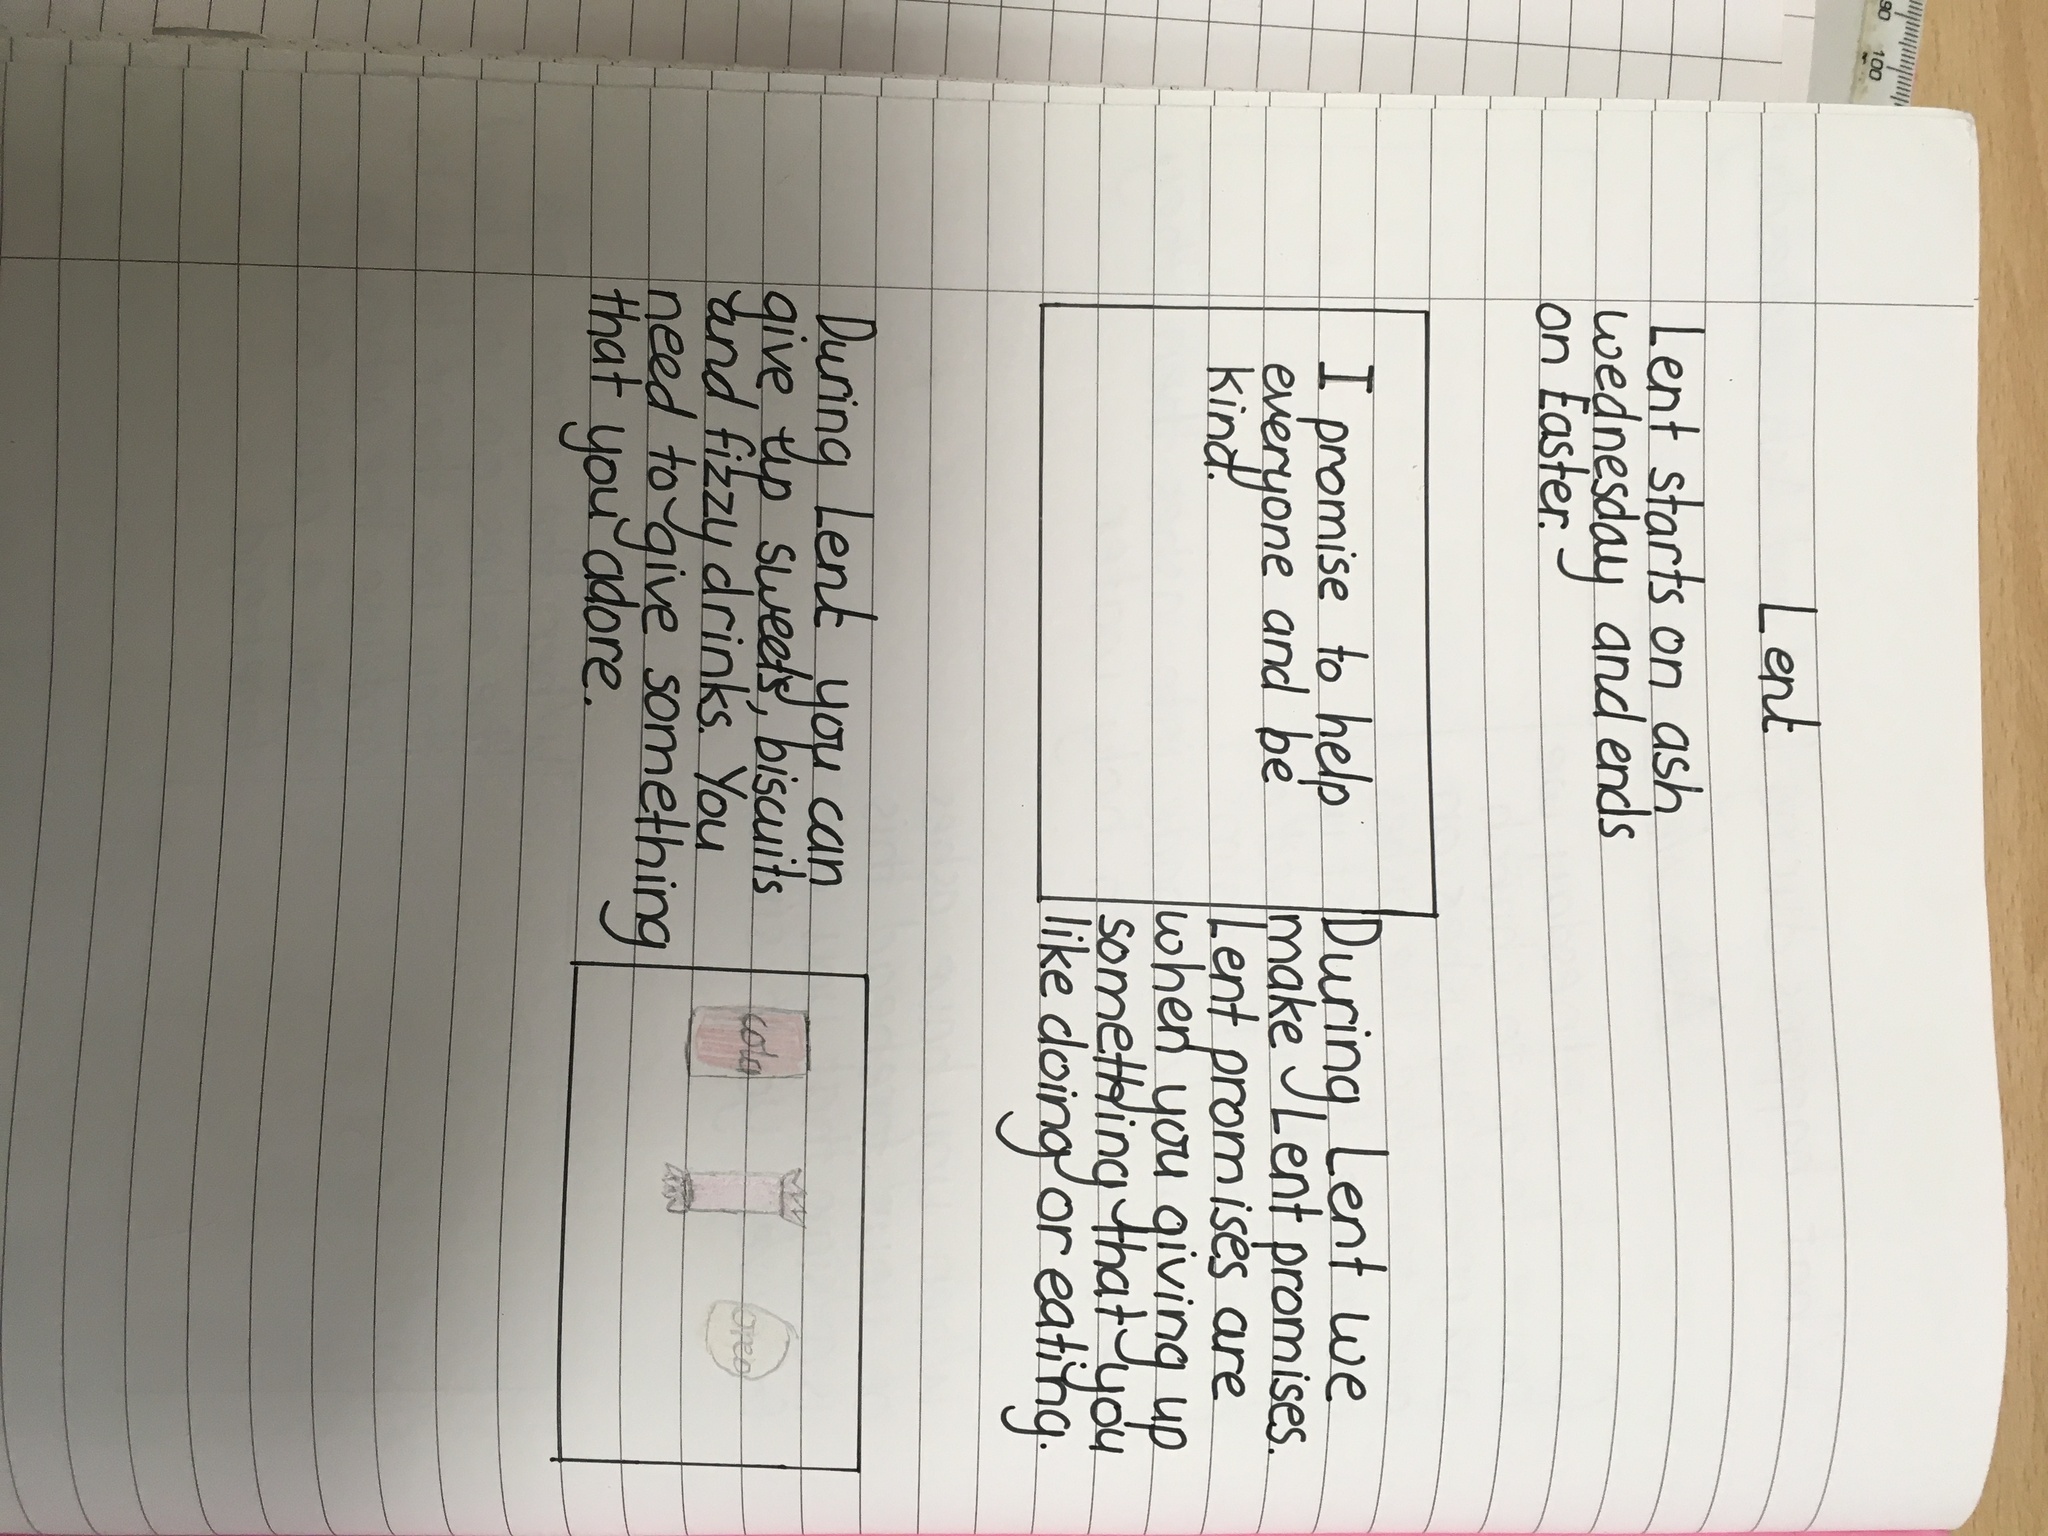 Lent
Lent starts on ash
wednesday and ends
on Easter.
I promise to help
everyone and be
kind.
During Lent we
make Lent promises.
Lent promises are
when you giving up
something that you
like doing or eating.
During Lent you can
give up sweets, biscuits
and fizzy drinks. You
need to give something
that you adore.
cola
oreo
90
100